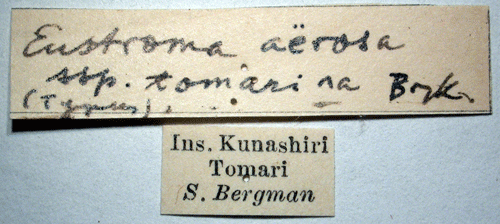 Eustroma aërosa
ssp. tomarina Bryk.
(Typus).
Ins. Kunashiri
Tomari
S. Bergman